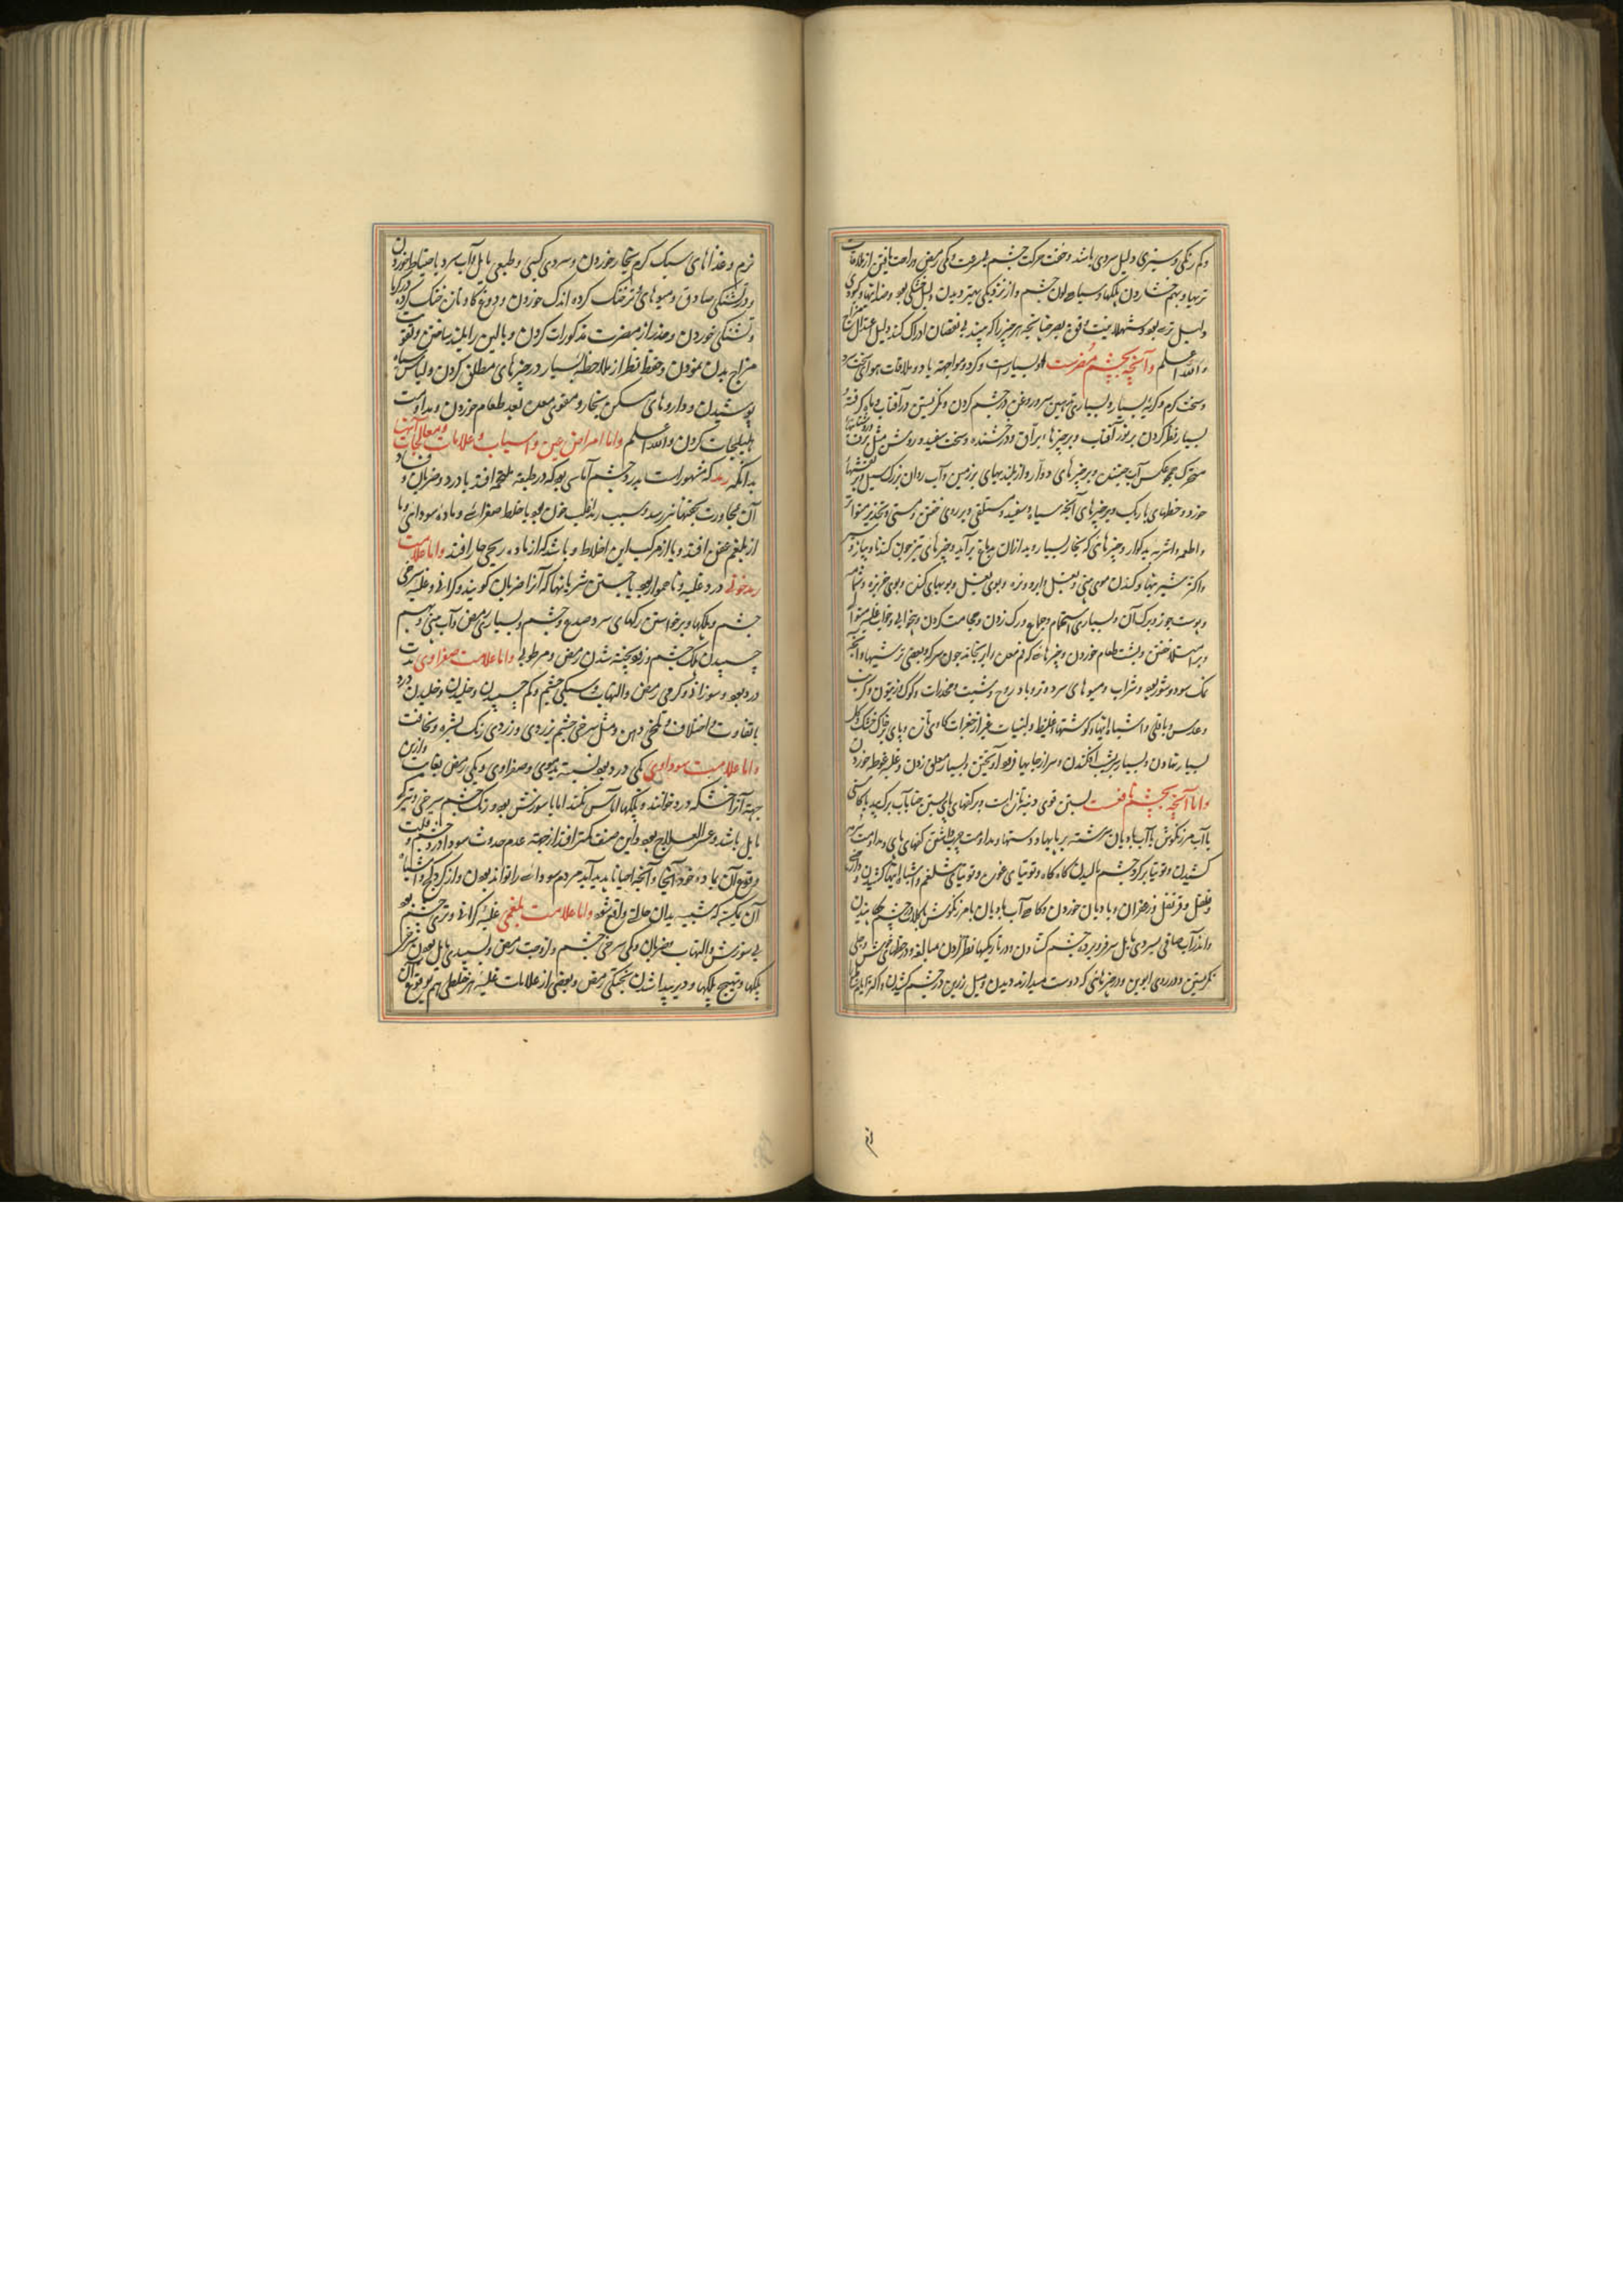 و کم رنگی و سبزی دلیل سردی باشد و خفت حرکت چشم بسرعت و کمی رمص و راحت یافتن از ملاقات
تریها و بهم فشاردن پلکها و سیاه لون چشم و از نزدیکی بهتر دیدن دلیل خشکی بود و ضد اینها و کبودی
دلیل تری بود و شهلائیت و قوت بصر چنانچه هر چیز را که بیند بی نقصان ادراک کند دلیل اعتدال مزاج
والله اعلم و آنچه بچشم مضرست دود بسیارست و کرد و مواجهه باد و ملاقات هوای سخت سرد
و سخت کرم و کریه بسیار و بسیاری تدهین سر و روغن در چشم کردن و نکریستن در آفتاب و ماه کرفته
بسیار نظر کردن بر نور آفتاب و بر چیزهاء براق و درخشنده و سخت سفید و روشن مثل برف
متحرک همچو عکس آب جنبنده و بر چیزهای دوار و از بلندیهای بر زمین و آب روان بزرک سیل و بر نقشهاء
خورد و خطهای باریک و بر چیزهای آنچه سیاه و سفید و مستلقی و بر روی خفتن و مستی و تخدیر متواتر
و اطعمه و اشربه بدکوار و چیزهائی که بخار بسیار و بد ازان بدماغ برآید و چیزهای تیز چون کندنا و پیاز و سیر
و اکثر شیرینیها و کندن موی بینی و بغل و ابرو و مژه و بوی بغل و بویهای کنده و بوی خربزه و شمام
و پوست جوز و برک آن و بسیاری استحمام و جماع و رک زدن و حجامت کردن و بیخوابی و خواب غلبه متواتر
و بر امتلا خفتن و بشب طعام خوردن و چیزهائی که فم معده را برنجاند چون سرکه و بعضی ترشیها و آنچه
نمک سود و شور بود و شراب و میوهای سرد و تر و بادروج و شبت و مخدرات و کوک و زیتون و کرنب
و عدس و باقلی و اشباه اینها و کوشتهاء غلیظ و لبنیات غیر از جغرات کاوی تازه و پای بر خاک خشک و کل
بسیار نهادن و بسیار پیش افکندن و سر از جایها فرود آویختن و بسیار معلق زدن و غلبه غوطه خوردن
و اما آنچه بچشم نافعست بستن قوی دنبه تازه است بر کفهای پای و بستن حنا بآب برک بید یا کاسنی
یا آب مرزنکوش یا آب بادیان سرشته بر پایها و دستها و مداومت چرب داشتن کفهای پای و مداومت سرمه
کشیدن و توتیا بر کرد چشم مالیدن کاه کاه و توتیای غوره و توتیای شلغم و اشباه اینها کشیدن و دارچینی
و فلفل و قرنفل و زعفران و بادیان خوردن و کاه آب بادیان با مرزنکوش با کلاب در چشم چکانیدن
و اندر آب صافی بسردی مایل سر فرو برده چشم کشادن و در تاریکیها نظر کردن مبالغه و در خطهای خوش و جلی
نکریستن و در روی ابوین و در چیزهائی که دوست میدارند دیدن و میل زرین در چشم کشیدن و اکثر ایام غذا
نرم و غذاهای سبک کرم بی بخار خوردن و سردی کسبی و طبعی مایل و آب سرد باحتیاط خوردن
در تشنکی صادق و میوهای تر خنک کرده اندک خوردن و دوغ کاو تازه خنک کرده در کرما
و تشنکی خوردن و حذر از مضرت مذکورات کردن و بالین را بلند ساختن و تقویت
مزاج بدن نمودن و حفظ نظر از ملاحظه بسیار در چیزهای مطلق کردن و لباس سیاه
پوشیدن و داروهای مسکن بخار و مقوی معده بعد طعام خوردن و مداومت
هلیلجات کردن والله اعلم و اما امراض عین و اسباب و علامات و معالجات آنها
بدانکه رمد که مشهور است بدرد چشم آماسی بود که در طبقه ملتحمه افتد با درد و ضربان و فساد
آن بمجاورت بجفنها نیز رسد و سبب رمد اغلب خون بود یا خلط صفرائی و ماده سودائی و یا
از بلغم عفن افتد و یا از مرکب این اخلاط و باشد که از ماده ریحی حار افتد و اما علامت
رمد خونی درد غلبه و ناهموار بود با جستن شریانها که آنرا ضربان کویند و کرانی و غلبه سرخی
چشم و پلکها و برخواستن رکهای سر و صدغ و چشم و بسیاری رمص و آب بینی و بهم
چسپیدن پلک چشم و زود پخته شدن رمص و مرطوبی و اما علامت صفراوی شدت
درد بود و سوزانی و کرمی رمص و التهاب و سبکی چشم و کم چسپیدن و خلیدن و خلیدن درد
با تفاوت و اختلاف و تلخی دهن و مثل سرخی چشم بزردی و زردی رنک بشره و نحافت
و اما علامت سوداوی کمی درد بود نسبت بدموی و صفراوی و کمی رمص بغایت و ازین
جهة آنرا خشکه درد خوانند و پلکها آماس نکند اما با سوزش بود و رنک چشم بسرخی و تیرکی
مایل باشد و عسر العلاج بود و این صنف کمتر افتد از جهة عدم حدوث سودا در چشم و از قلت
وقوع آن ماده خود آنجا و آنچه احیانا پدید آید مردم سودائی را تواند بودن و از کرد کچ و اشباه
آن یکیست که شبیه بدان حالی واقع شود و اما علامت بلغمی غلبه کرانی و تری چشم بود
بی سوزش و التهاب و ضربان و کمی سرخی چشم و لزوجت رمص و بسپیدی مایل بودن سرخی
پلکها و تهیج پلکها و دیر پیدا شدن پختکی رمص و بعضی از علامات غلبه هر خلطی هم بوقوع آن
نرم